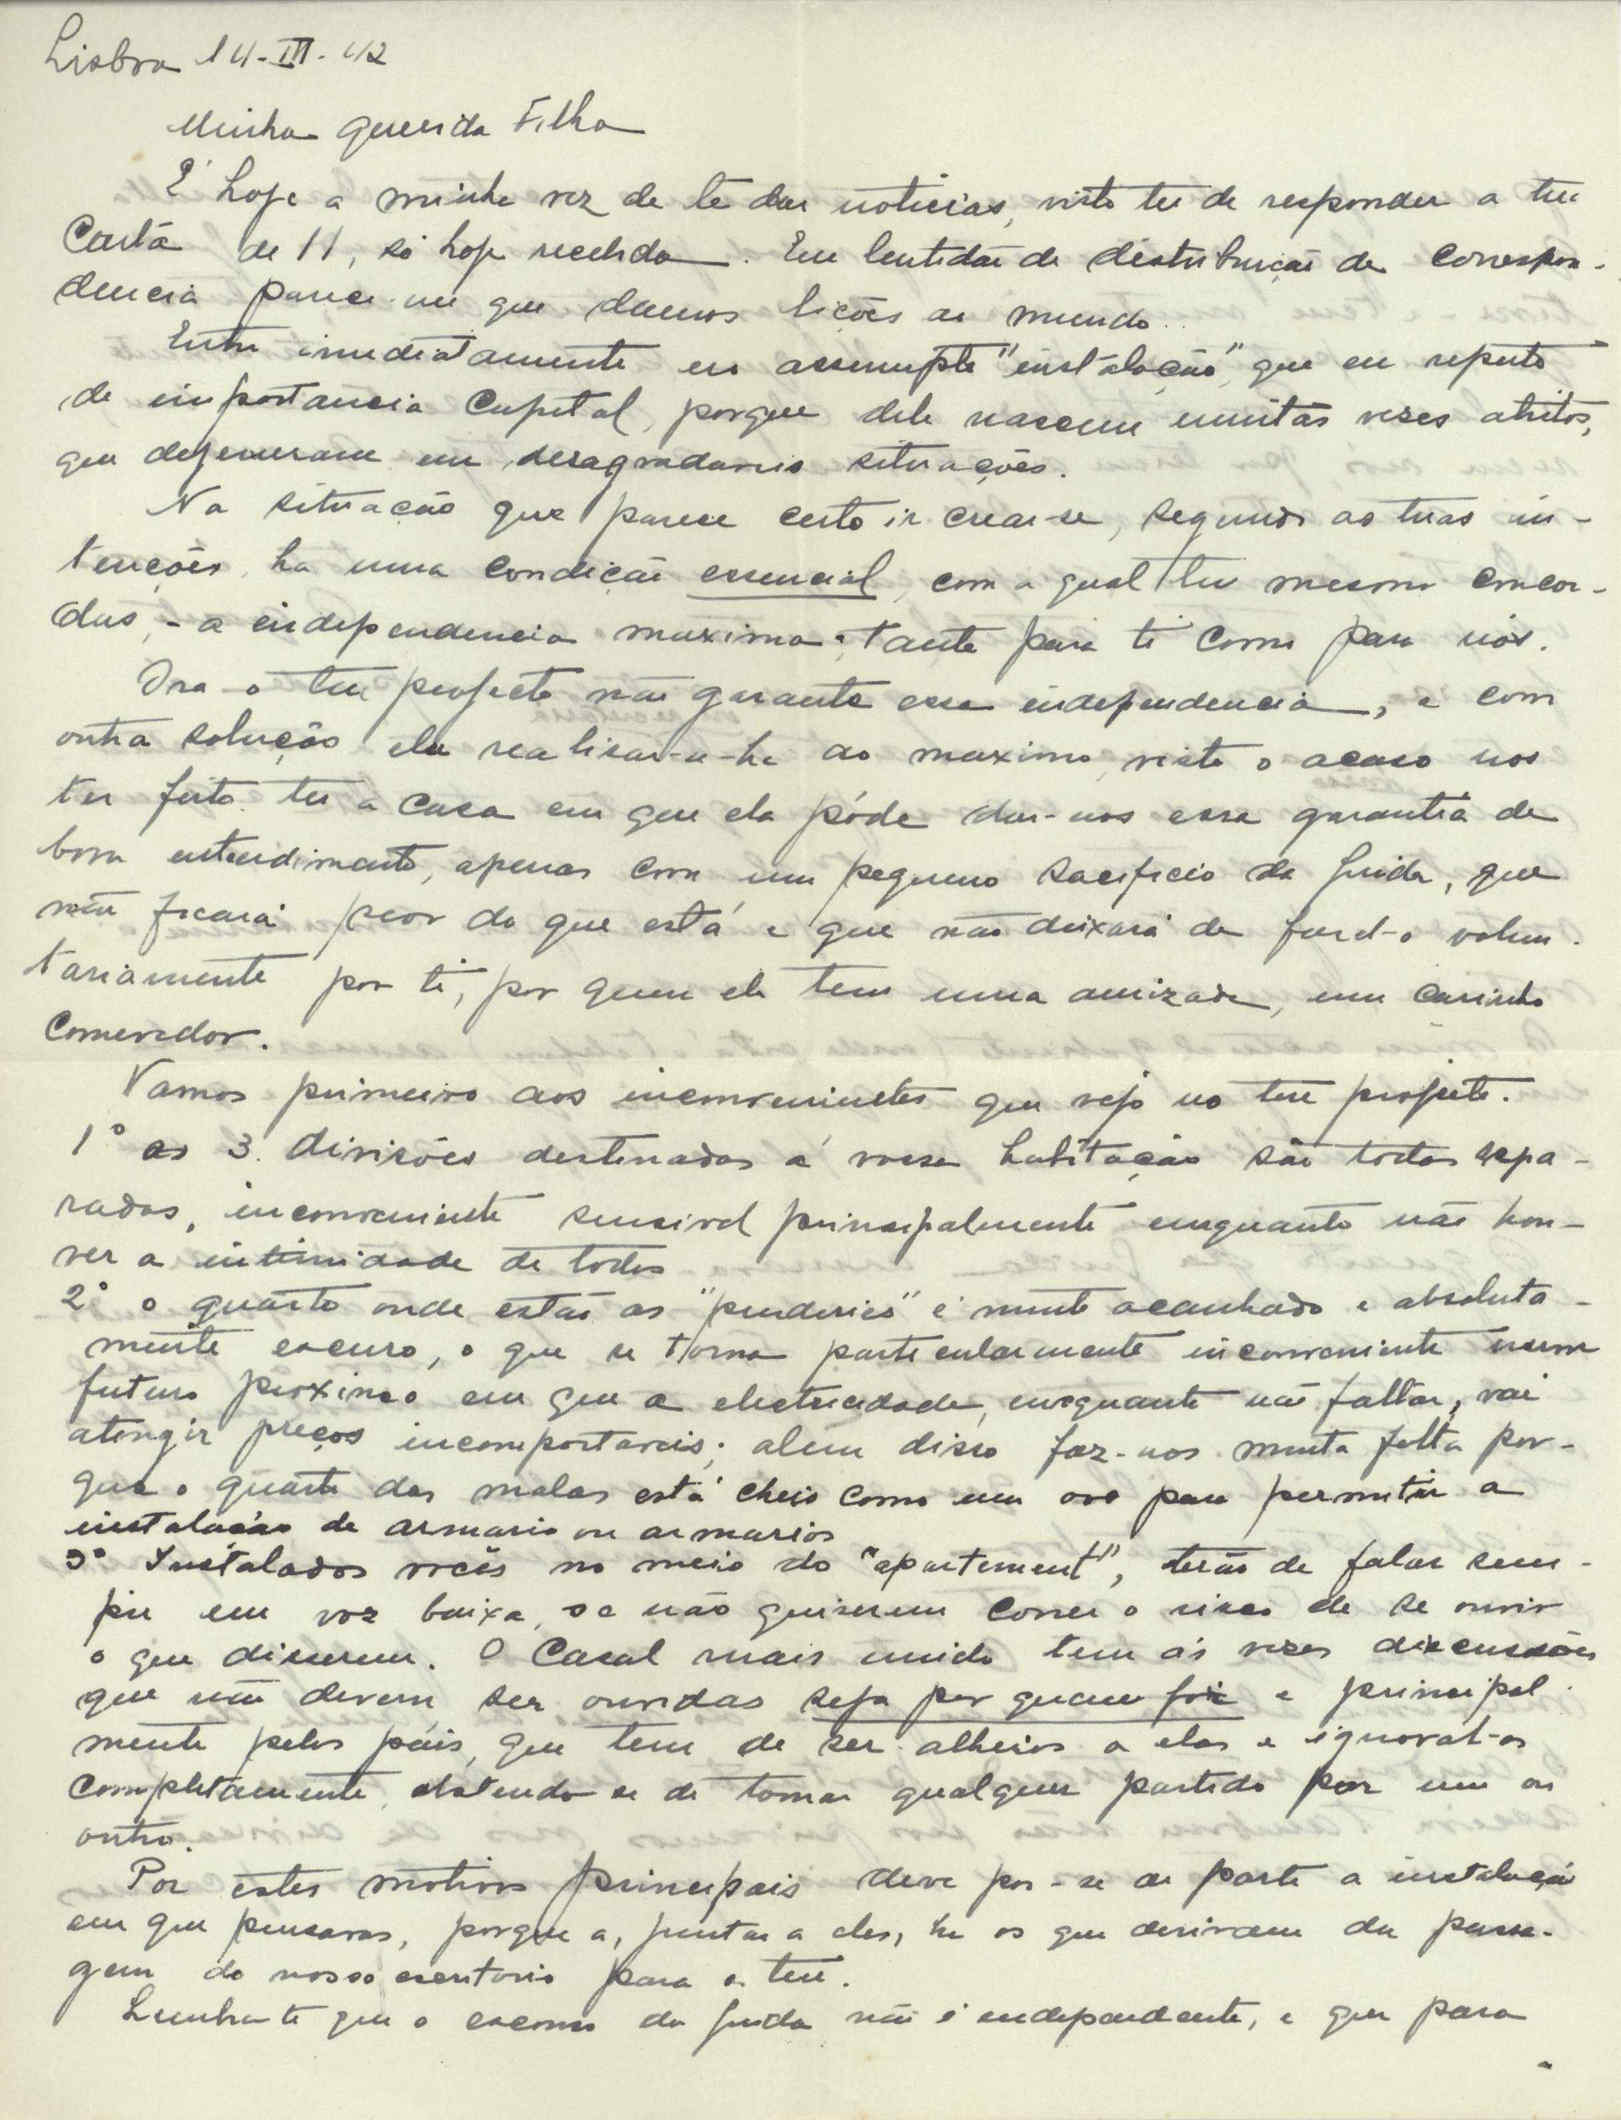 Lisboa 14-III-42
Minha querida Filha
E' hoje a minha vez de te dar noticias, visto ter de responder a tua
Carta de 11, só hoje recebida. Em lentidão de distribuição de correspon-
dencia parece-me que damos lições ao mundo.
Entro imediatamente no assumpto "instalação", que eu reputo
de importancia capital, porque dele nascem muitas vezes atritos,
que degeneram em desagradaveis situações.
Na situação que parece certo ir crear-se, segundo as tuas in-
tenções, ha uma condição essencial, com a qual tu mesmo concor-
das, - a independencia maxima, tanto para ti como para nós.
Ora o teu projecto não garante essa independencia, e com
outra solução ela realisar-se-ha ao maximo, visto o acaso nos
ter feito ter a casa em que ela póde dar-nos essa garantia de
bom entendimento, apenas com um pequeno sacrificio da , que
não ficará peor do que está e que não deixará de fazel-o volun-
tariamente por ti, por quem ela tem uma amizade, um carinho
comovedor.
Vamos primeiro aos inconvenientes que vejo no teu projecto.
1º as 3 divisões destinadas á vossa habitação são todas sepa-
radas, inconveniente sensivel principalmente emquanto não hou-
ver a intimidade de todos
2º o quarto onde estão as "penderies" é muito acanhado e absoluta-
mente escuro, o que se torna particularmente inconveniente num
futuro proximo em que a electricidade, emquanto não faltar, vai
atingir preços incomportaveis; alem disso faz-nos muita falta por-
que o quarto das malas está cheio como um ovo para permitir a
instalação de armario ou armarios
3º Instalados vocês no meio do "apartement", terão de falar sem-
pre em voz baixa, se não quiserem correr o risco de se ouvir
o que disserem. O Casal mais unido tem ás vezes discussões
que não devem ser ouvidas seja por quem fôr e principal-
mente pelos páis, que tem de ser alheios a elas e ignoral-as
completamente, abstendo-se de tomar qualquer partido por um ou
outro.
Por estes motivos principais deve pôr-se de parte a instalação
em que pensavas, porque a juntar a eles, ha os que derivam da passa-
gem do nosso escritorio para o teu.
Lembra-te que o da não é independente, e que para